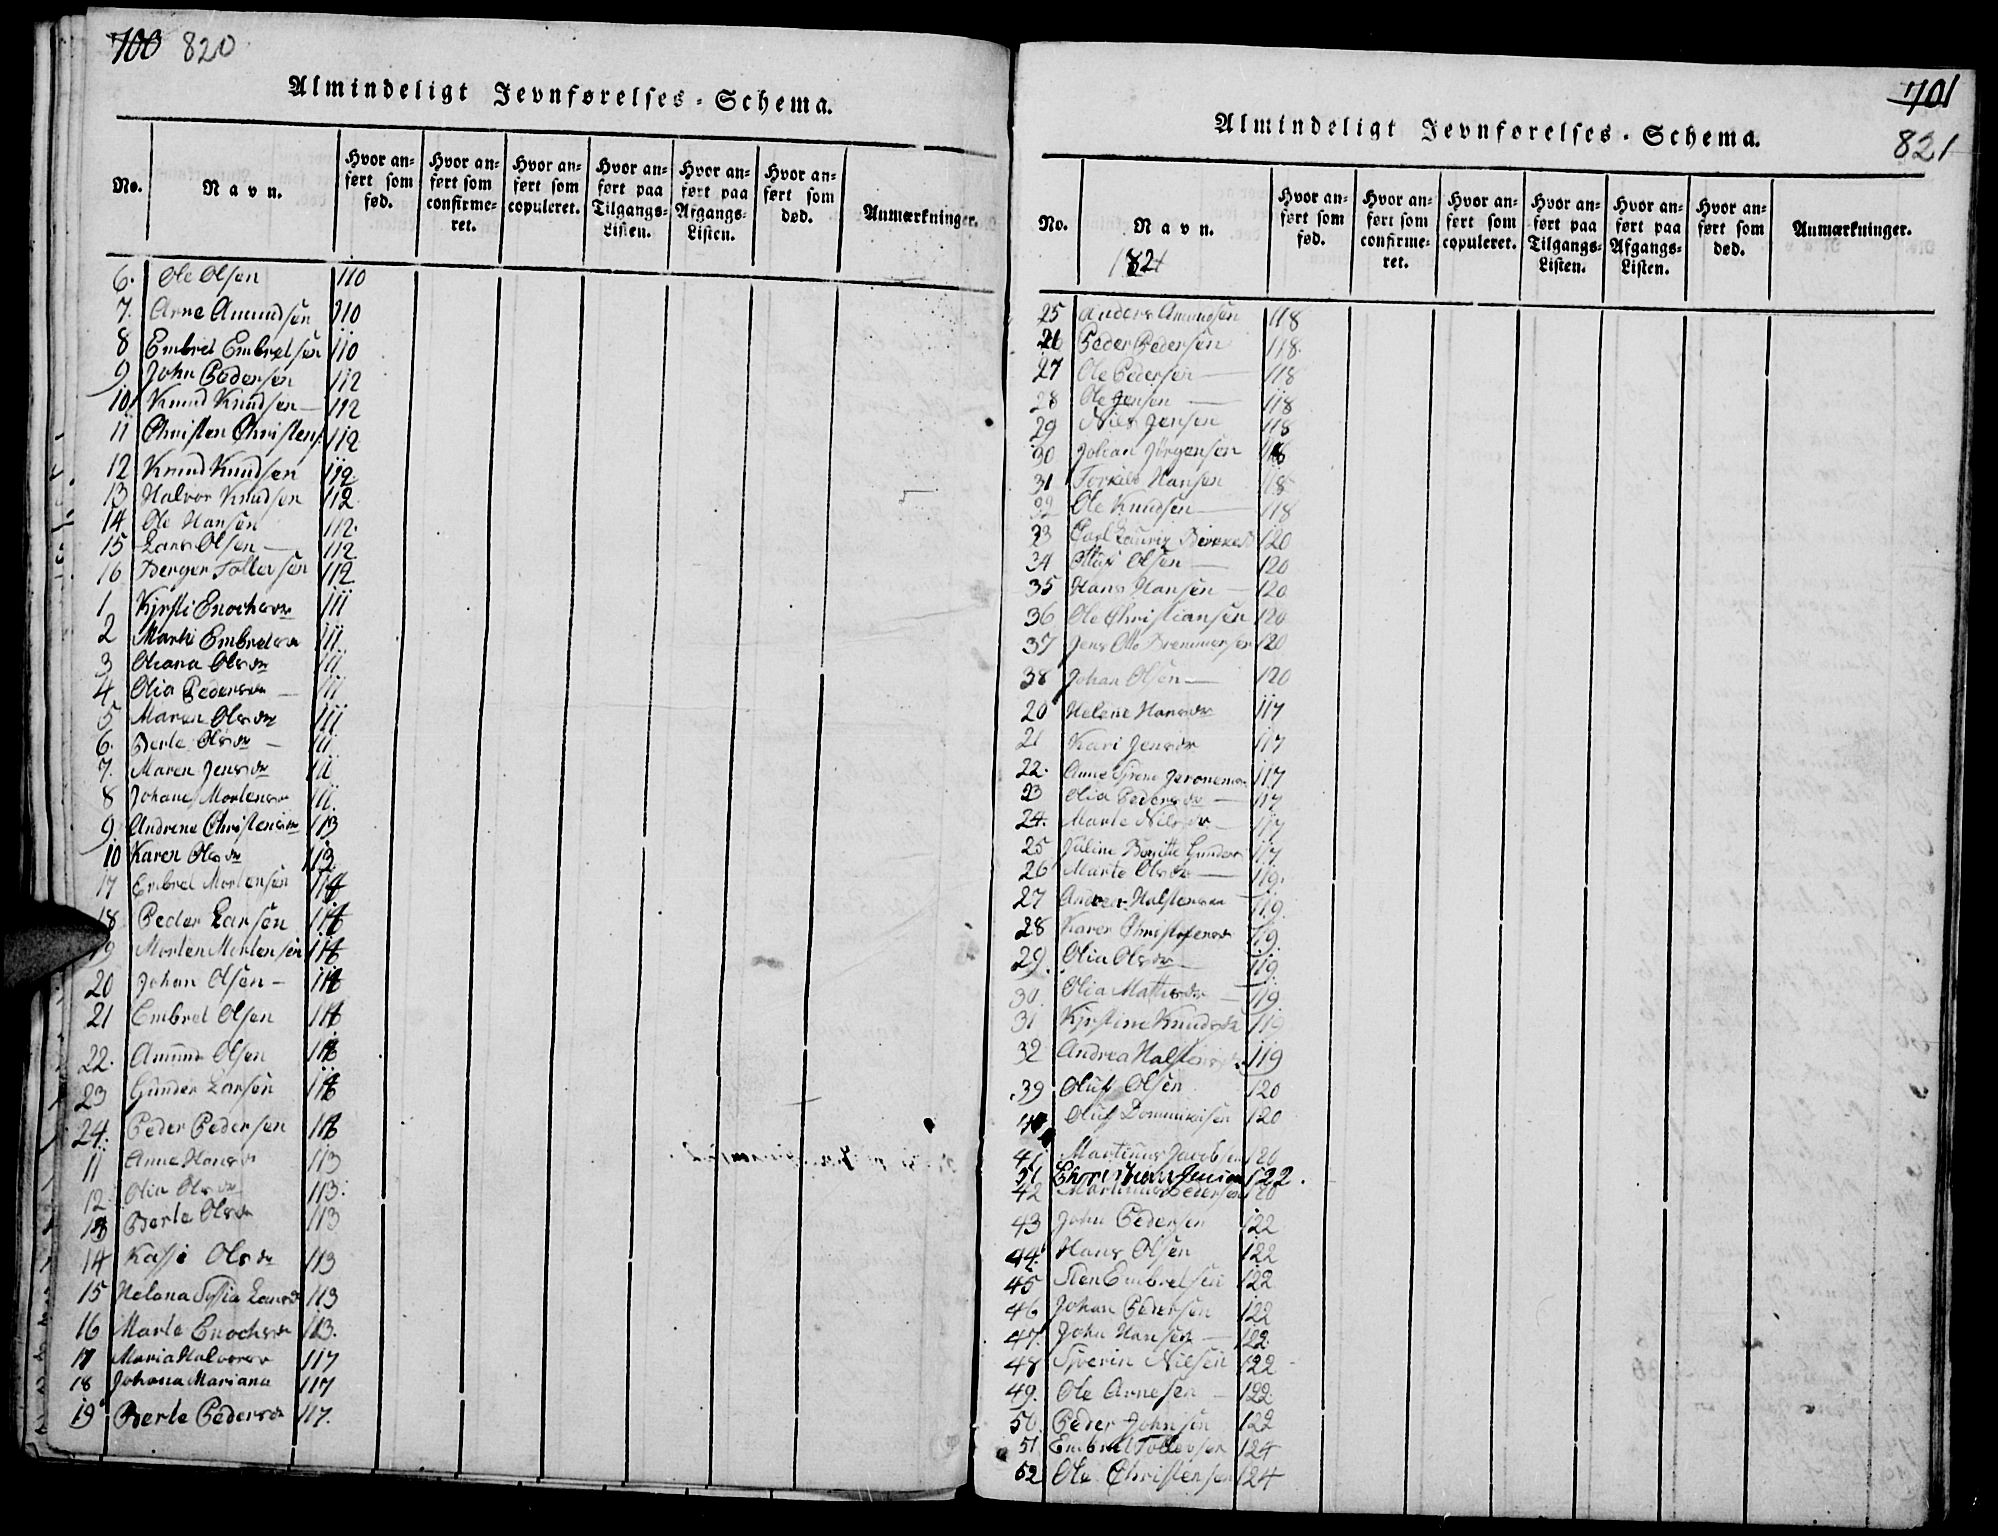 700 820
Almindeligt Jevnførelses-Schema.
No. Navn. Hvor anført som fød. Hvor anført som confirmeret. Hvor anført som copuleret. Hvor anført paa Tilgangs-Listen. Hvor anført paa Afgangs-Listen. Hvor anført som død. Anmærkninger.
6. Ole Olsen 110
7. Arne Amundsen 110
8 Embret Embretsen 110
9. John Pedersen 112
10 Knud Knudsen 112
11 Christen Christens. 112
12 Knud Knudsen 112
13 Halvor Knudsen 112
14 Ole Hansen 112.
15 Lars Olsen 112
16 Berger Tollevsen 112
1 Kjrsti Enochsdr 111
2 Marti Embretsdr 111
3 Oleana Olsdr 111
4 Olia Pedersdr 111
5 Maren Olsdr 111
6. Berte Olsdr 111
7. Maren Jensdr 111
8 Johane Mortensdr 111
9 Andrene Christensdr 113
10 Karen Olsdr 113
17 Embret Mortensen 114
18 Peder Larsen 114
19 Morten Mortensen 114
20 Johan Olsen 114
21 Embret Olsen 116
22. Amund Olsen 116
23 Gunder Larsen 116
24. Peder Pedersen 116
11 Anne Hansdr 113
12 Olia Olsdr 113.
13 Berte Olsdr 113
14 Kassi Olsdr 113
15 Helena Sofia Larsdr 113
16 Marte Enochsdr 113.
17 Maria Halvorsdr 117
18 Johana Mariana 117
19 Berte Pedersdr 117.
701
821
Almindeligt Jevnførelses-Schema.
No. Navn. Hvor anført som fød. Hvor anført som confirmeret. Hvor anført som copuleret. Hvor anført paa Tilgangs-Listen. Hvor anført paa Afgangs-Listen. Hvor anført som død. Anmærkninger.
1821
25 Anders Amundsen 118
26 Peder Pedersen 118.
27 Ole Pedersen 118
28 Ole Jensen 118
29 Niels Jensen 118
30 Johan Jörgensen 118
31 Torkild Hansen 118
32 Ole Knudsen 118
33 Carl Lauriz 120
34 Olsen 120
35 Hans Hansen 120
36 Ole Christiansen 120
37 Jens Otto Bremmersen 120
38 Johan Olsen 120
20 Helene Hansdr 117
21 Kari Jensdr 117
22. Anne 117
23 Olia Pedersdr 117
24. Marte Nilsdr 117
25 Juline Birgitte Gundersdr 117
26 Marte Olsdr 119.
27 Andrea Halstensdr 119
28 Karen Christofersdr 119
29. Olia Olsdr 119
30. Olia Mathisdr 119
31 Kjrstine Knudsdr 119
32 Andrea Halstensdr 119
39 Oluf Olsen 120
40 Oluf 120
41 Martinus Jacobsen 120
51 122.
42 Martinus Pedersen 120
43 John Pedersen 122
44. Hans Olsen 122
45 Sten Embretsen 122
46 Johan Pedersen 122
47. John Hansen 122
48 Syverin Nilsen 122
49. Ole Arnesen 122
50. Peder Johnsen 122
51 Embret Tollevsen 124
52 Ole Christensen 124